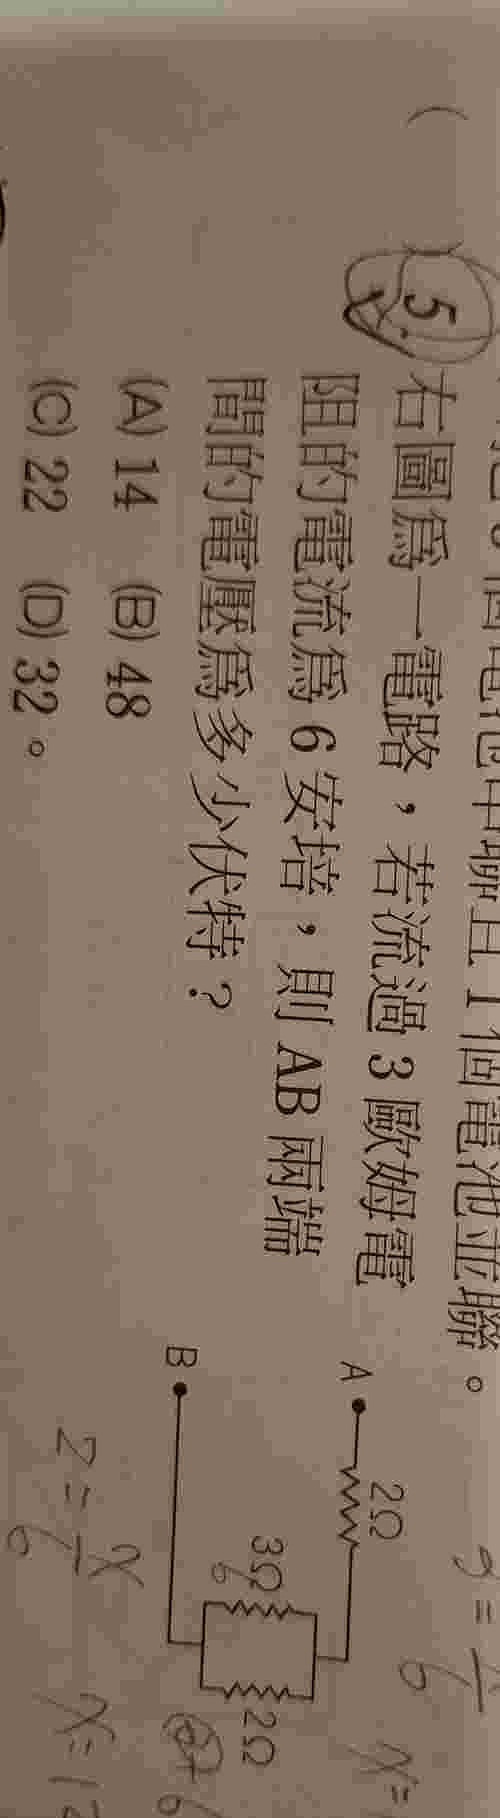 個電池串聯且1個電池並聯。
( )5. 右圖為一電路，若流過3歐姆電
阻的電流為6安培，則AB兩端
間的電壓為多少伏特？
(A) 14 (B) 48
(C) 22 (D) 32。
A
2Ω
3Ω
6
2Ω
B
2=x/6
x=12
x=